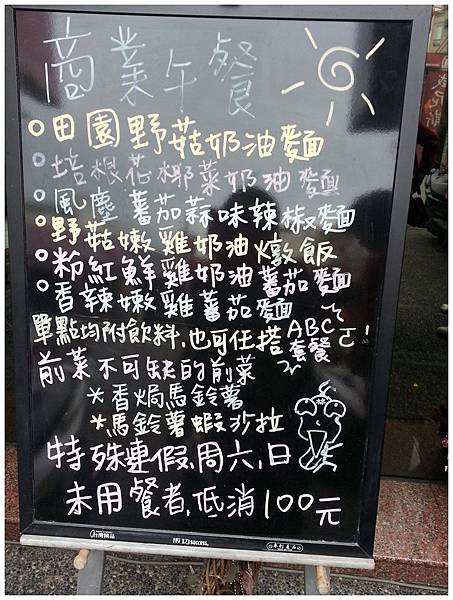 商業午餐
○田園野菇奶油麵
○培根花椰菜奶油麵
○風塵蕃茄蒜味辣椒麵
○野菇嫩雞奶油燉飯
○粉紅鮮雞奶油蕃茄麵
○香辣嫩雞蕃茄麵
單點均附飲料,也可任搭ABC套餐ㄛ!
前菜不可缺的前菜
*香焗馬鈴薯
*馬鈴薯蝦沙拉
特殊連假,周六,日
未用餐者,低消100元
success